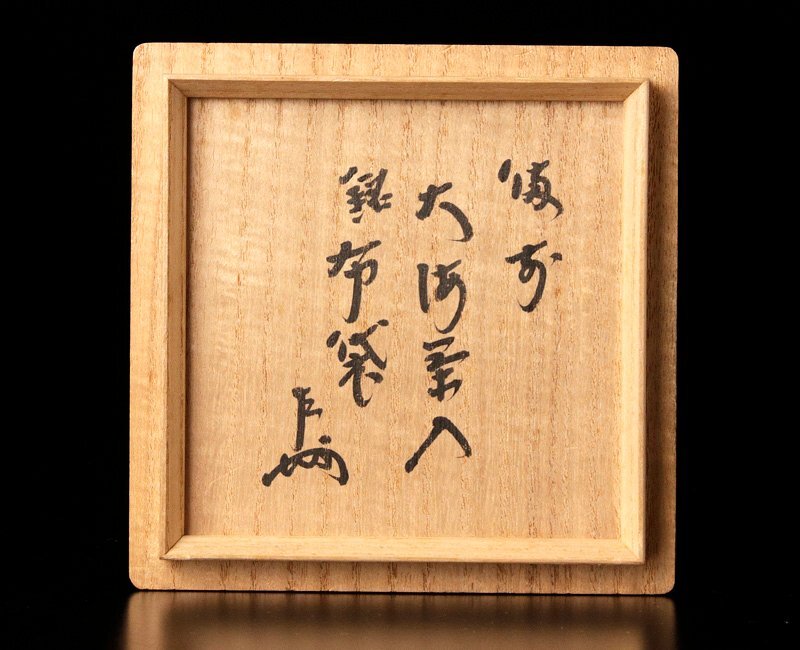 備前
大海茶入
銘布袋